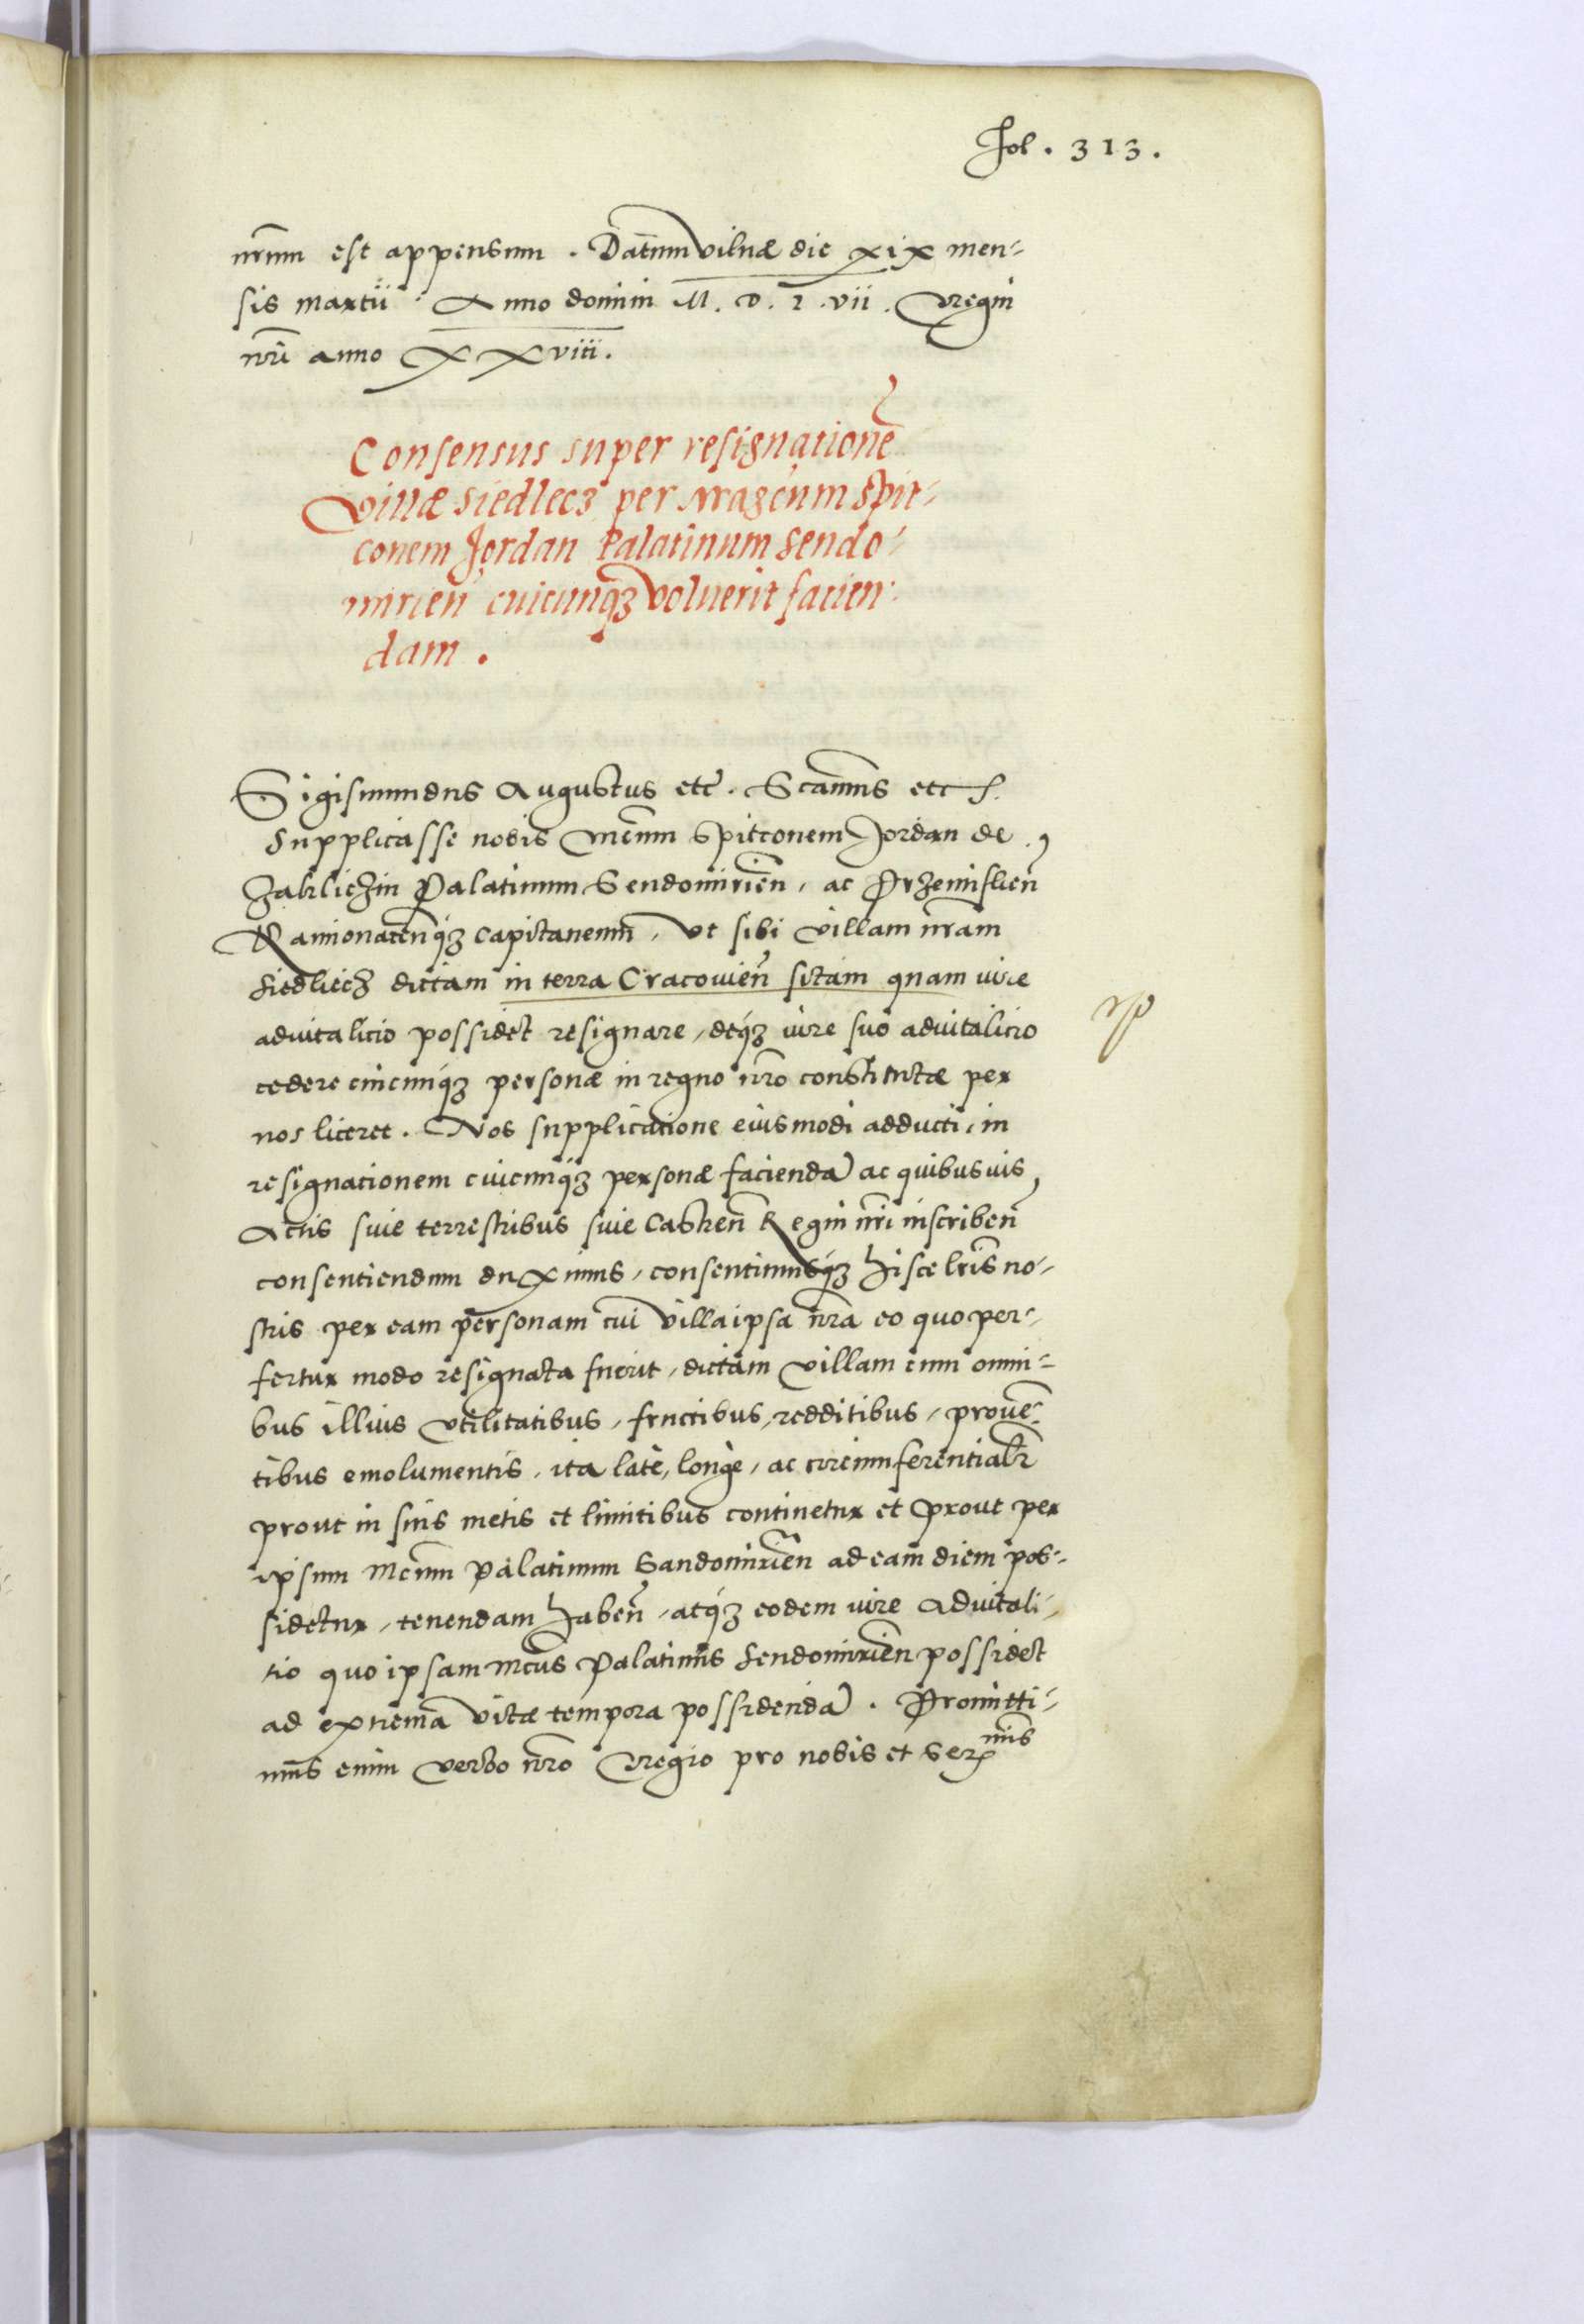 Fol. 313.
nrm̃m est appensum. Datum vilnæ die xix men-
sis martii Anno domini M. D. L. vii. Regni
nr̃i anno XXviii.
Consensus super resignationẽ
Villæ Siedlecz per Magcum Spit-
conem Jordan Palatinum Sendo-
mirien̄ cuicunqȝ voluerit facien-
dam.
Sigismundus Augustus etc̃. Scamus etc S.
Supplicasse nobis Mcum Spitconem Jordan de
Zakliczin Palatinum Sendomirien̄, ac Przemislien̄
Kamionacenqȝ capitaneum, Ut sibi villam nr̃am
Siedliecz dictam in terra Cracovien̄ sitam quam iure
advitalicio possidet resignare, deqȝ iure suo advitalicio
cedere cuicunqȝ personæ in regno nr̃o constitutæ per
nos liceret. Nos supplicatione eiusmodi adducti, in
resignationem cuicunqȝ personæ faciendã ac quibusuis
Actis siue terrestribus siue Castren̄ Regni nr̃i inscriben̄
consentiendum duximus, consentimusqȝ hisce lr̃is no-
stris per eam personam cui villa ipsa nr̃a eo quo per-
fertur modo resignata fuerit, dictam villam cum omni-
bus illius utilitatibus, fructibus, redditibus, prouen̄-
tibus emolumentis, ita latè, longè, ac circumferentialr̃
prout in suis metis et limitibus continetur et prout per
ipsum Mcum Palatinum Sandomirien̄ ad eam diem pos-
sidetur, tenendam haben̄, atqȝ eodem iure Advitali-
tio quo ipsam Mcus Palatinus Sendomirien̄ possidet
ad extrema vitæ tempora possidendã. Promitti-
mus enim verbo nr̃o Regio pro nobis et Serᵐⁱˢ